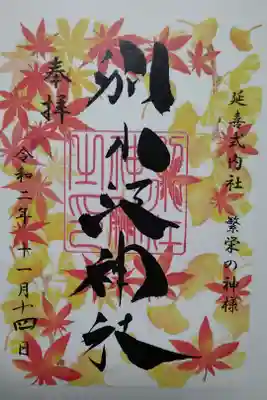 延喜式内社 繁栄の神様
別小江神社
奉拝
令和二年十一月十四日